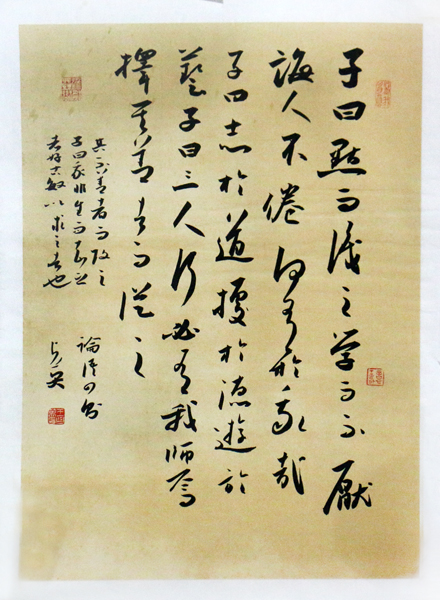 子曰默而識之学而不厭
誨人不倦何有於我哉
子曰志於道據於德遊於
藝子曰三人行必有我師焉
擇其善者而從之
其不善者而改之
子曰我非生而知之
者好古敏以求之者也
論語